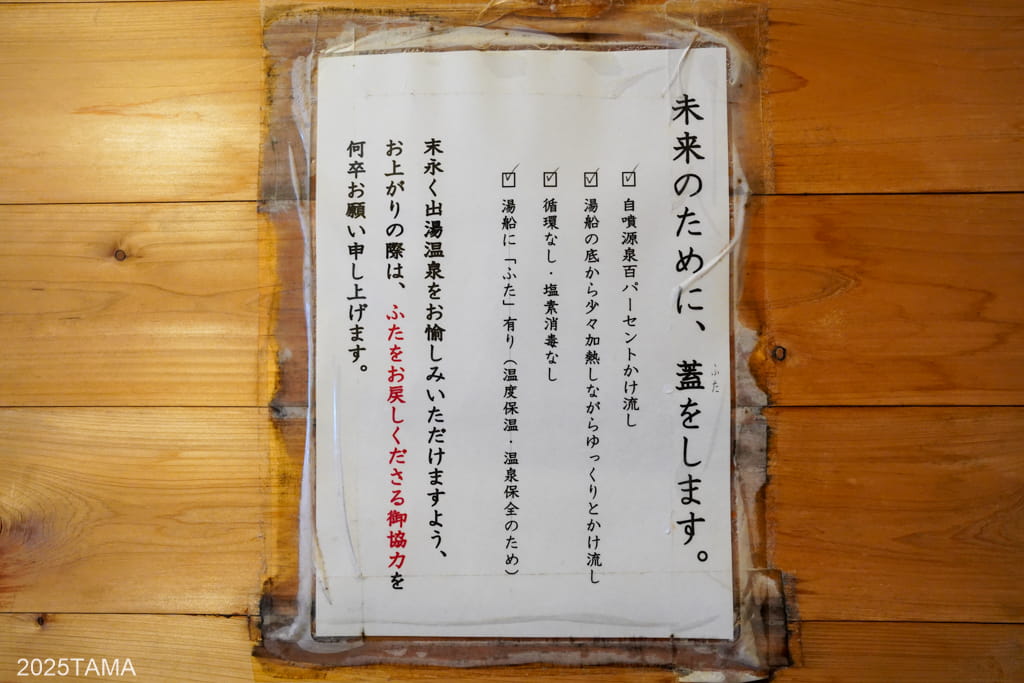 未来のために、蓋をします。
ふた
☑ 自噴源泉百パーセントかけ流し
☑ 湯船の底から少々加熱しながらゆっくりとかけ流し
☑ 循環なし・塩素消毒なし
☑ 湯船に「ふた」有り（温度保温・温泉保全のため）
末永く出湯温泉をお愉しみいただけますよう、
お上がりの際は、ふたをお戻しくださる御協力を
何卒お願い申し上げます。
2025TAMA